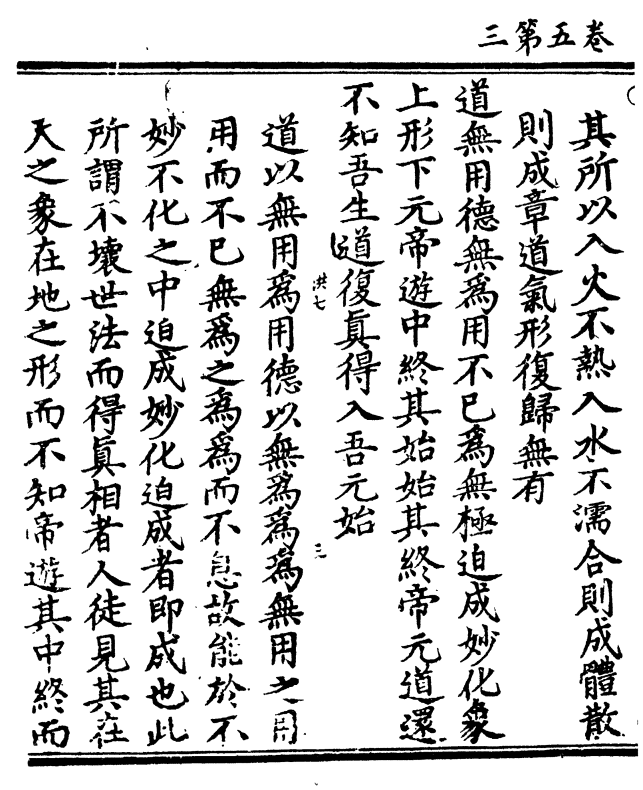 卷五第三
其所以入火不熱入水不濡合則成體散
則成章道氣形復歸無有
道無用德無爲用不已爲無極迫成妙化象
上形下元帝遊中終其始始其終帝元道還
不知吾生道復眞得入吾元始
洪七
三
道以無用爲用德以無爲爲爲無用之用
用而不已無爲之爲爲而不息故能於不
妙不化之中迫成妙化迫成者即成也此
所謂不壞世法而得眞相者人徒見其在
天之象在地之形而不知帝遊其中終而